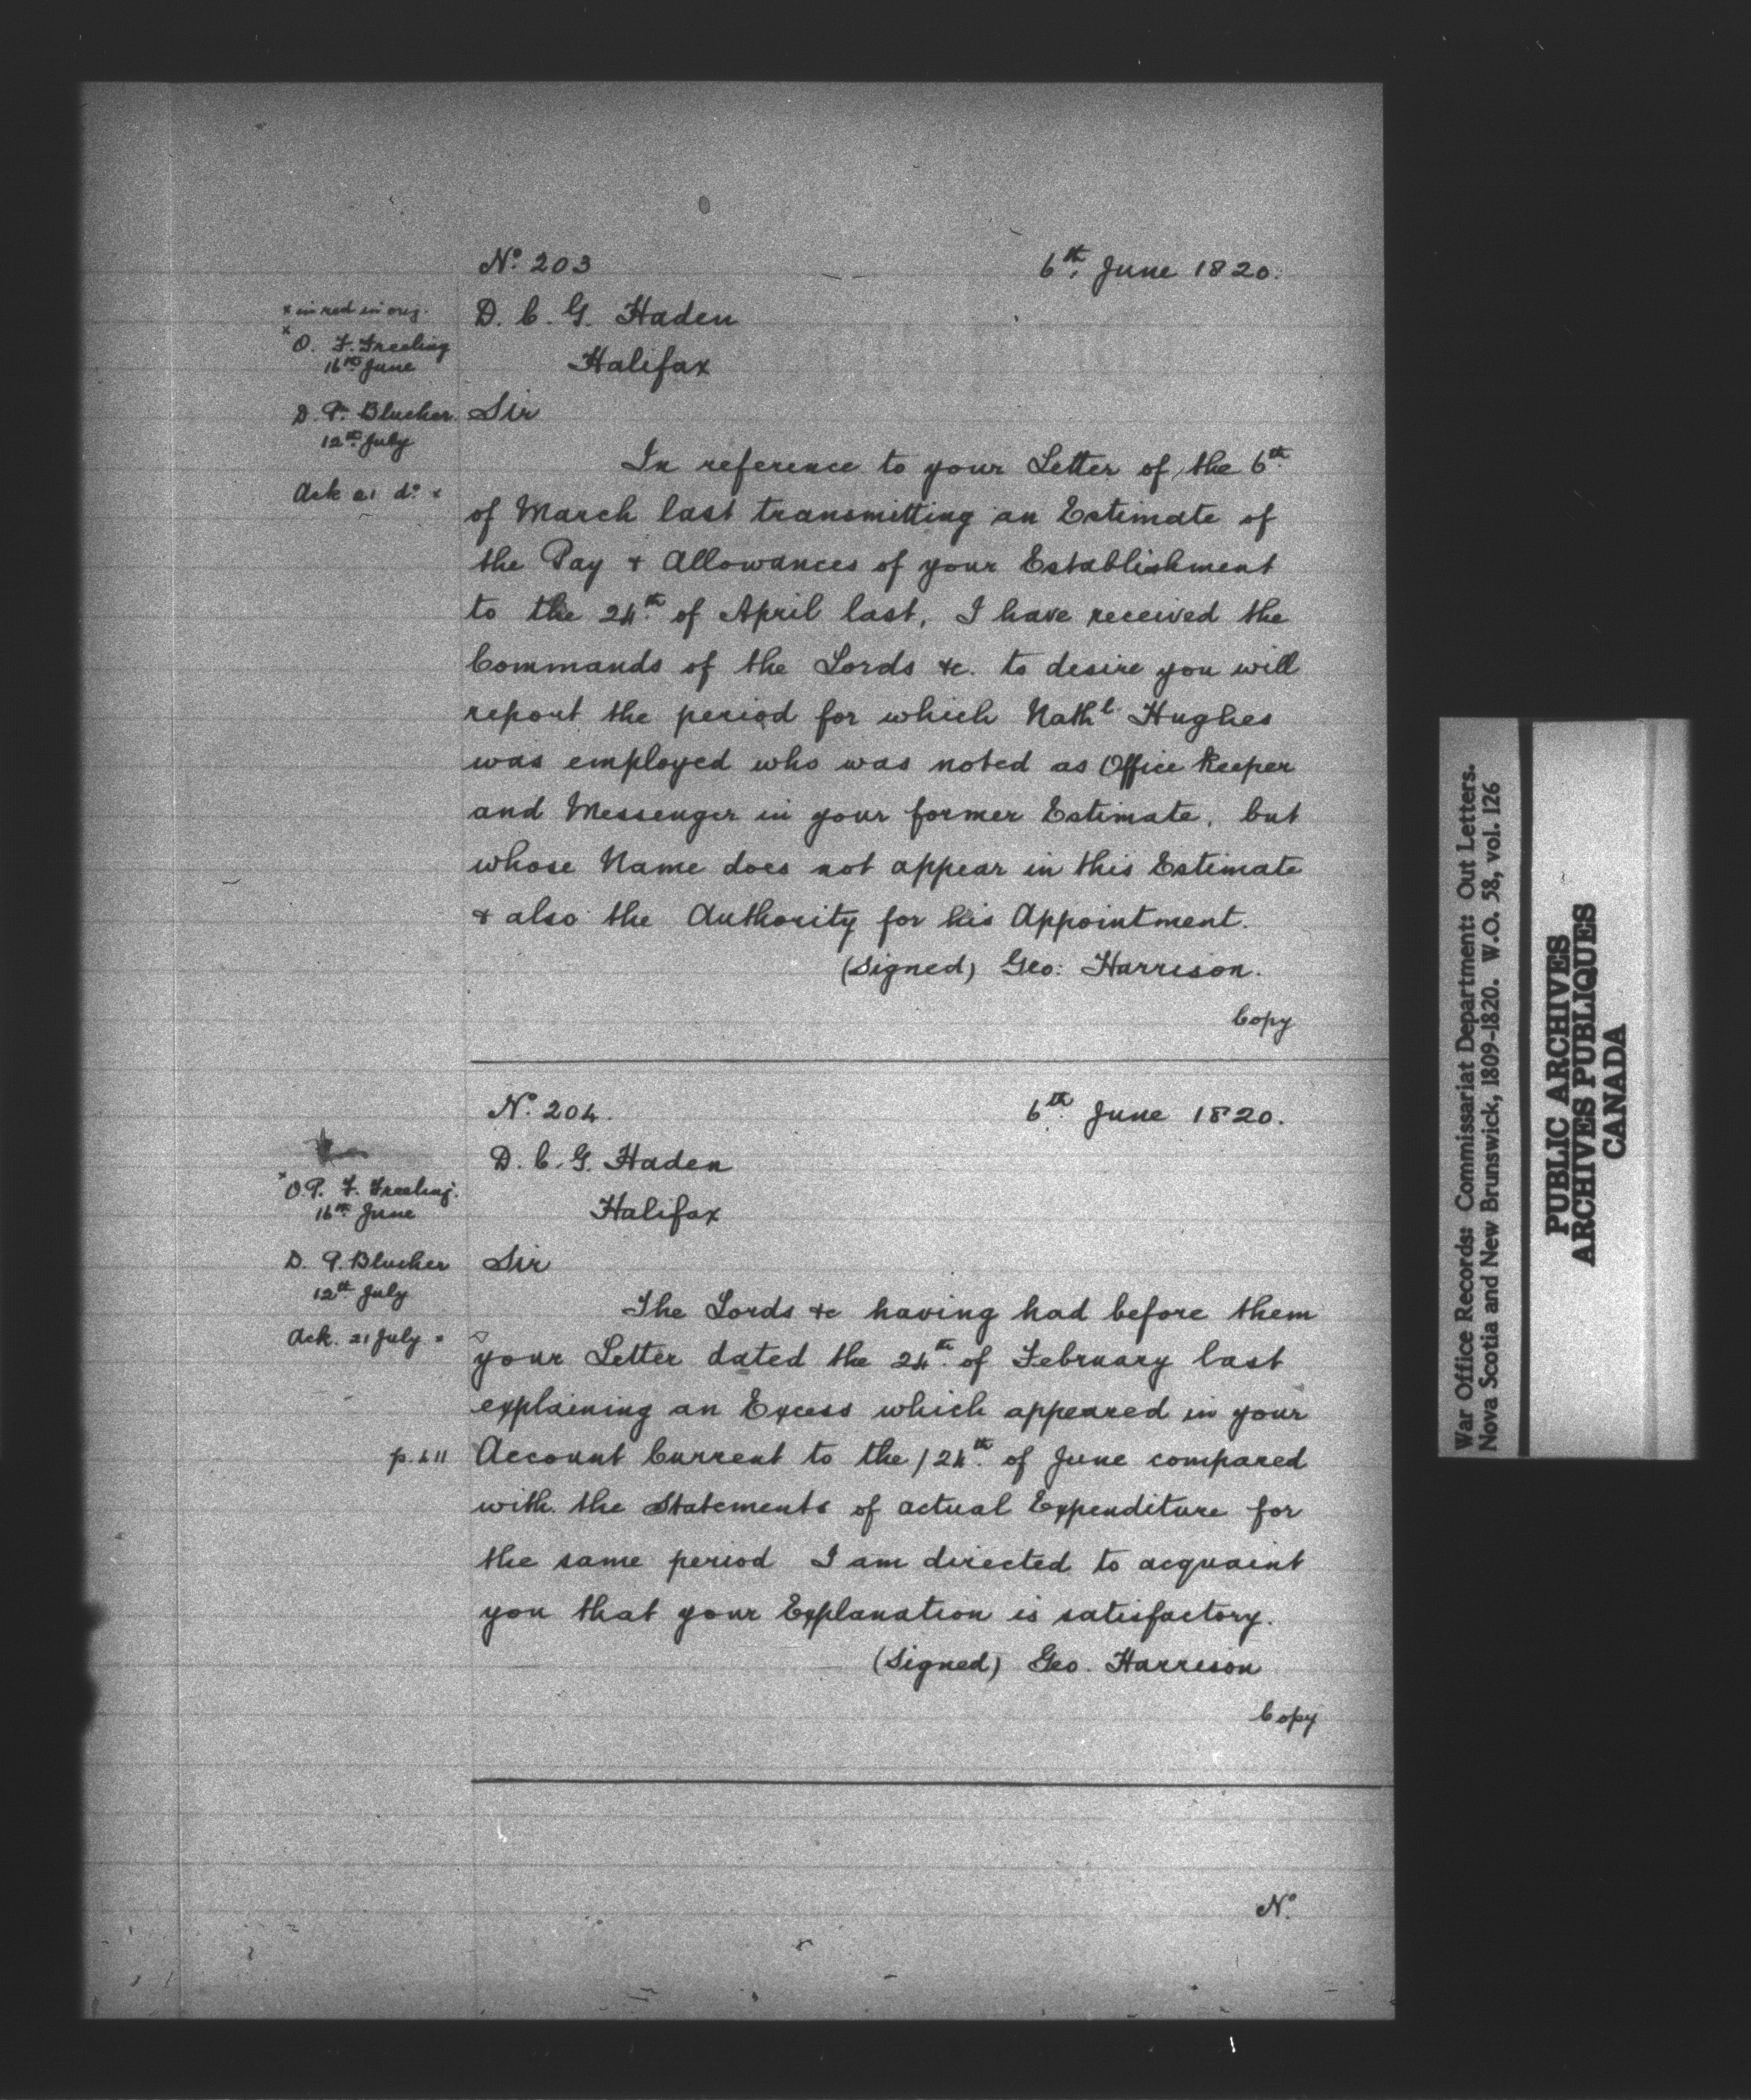 No. 203
6th. June 1820.
x in red in orig.
D. C. G. Haden
x O. F. Freeling
16th June
Halifax
D. P. Blucher
12th July
Sir
Ack 21 do x
In reference to your Letter of the 6th.
of March last transmitting an Estimate of
the Pay & Allowances of your Establishment
to the 24th. of April last, I have received the
Commands of the Lords &c. to desire you will
report the period for which Nathl Hughes
was employed who was noted as Office Keeper
and Messenger in your former Estimate, but
whose Name does not appear in this Estimate
& also the Authority for his Appointment.
(Signed) Geo: Harrison.
Copy
No. 204.
6th. June 1820.
D. C. G. Haden
x O.P. F. Freeling.
16th June
Halifax
D. P. Blucher
12th July
Sir
Ack. 21 July x
The Lords &c having had before them
your Letter dated the 24th. of February last
explaining an Excess which appeared in your
p. 411
Account Current to the / 24th. of June compared
with the Statements of actual Expenditure for
the same period I am directed to acquaint
you that your Explanation is satisfactory.
(Signed) Geo. Harrison
Copy
No.
War Office Records: Commissariat Department: Out Letters.
Nova Scotia and New Brunswick, 1809-1820. W.O. 58, vol. 126
PUBLIC ARCHIVES
ARCHIVES PUBLIQUES
CANADA